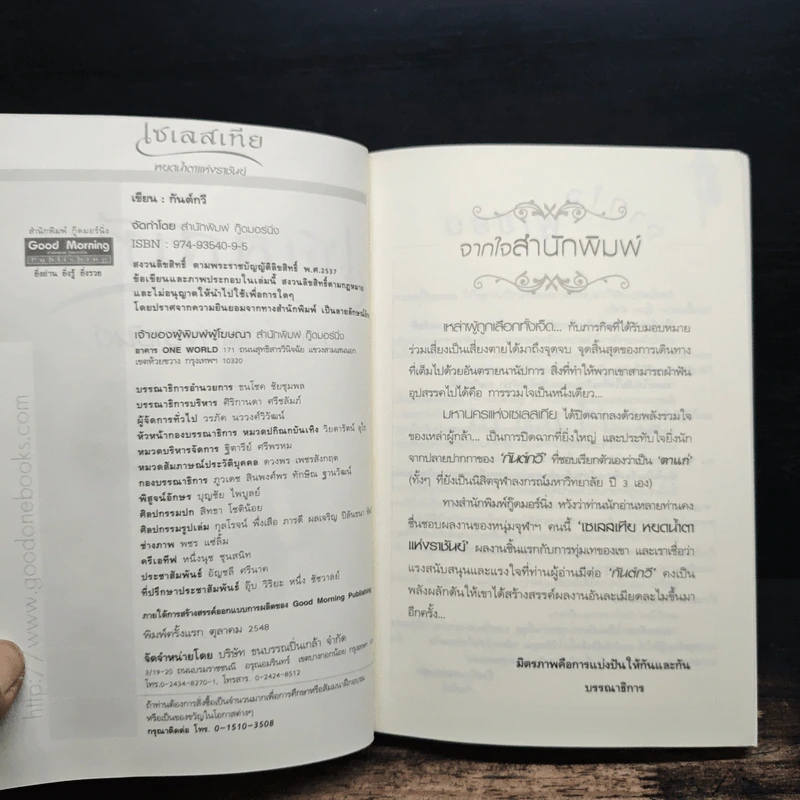 เซเลสเทีย
หยดน้ำตาแห่งราชันย์
เขียน : กันต์กวี
จัดทำโดย สำนักพิมพ์ กู๊ดมอร์นิ่ง
ISBN : 974-93540-9-5
สงวนลิขสิทธิ์ ตามพระราชบัญญัติลิขสิทธิ์ พ.ศ.2537
ข้อเขียนและภาพประกอบในเล่มนี้ สงวนลิขสิทธิ์ตามกฎหมาย
และไม่อนุญาตให้นำไปใช้เพื่อการใดๆ
โดยปราศจากความยินยอมจากทางสำนักพิมพ์ เป็นลายลักษณ์
เจ้าของผู้พิมพ์ผู้โฆษณา สำนักพิมพ์ กู๊ดมอร์นิ่ง
อาคาร ONE WORLD 171 ถนนสุทธิสารวินิจฉัย แขวงสามเสนนอก
เขตห้วยขวาง กรุงเทพฯ 10320
สำนักพิมพ์ กู๊ดมอร์นิ่ง
Good Morning
Publishing
ยิ่งอ่าน ยิ่งรู้ ยิ่งรวย
บรรณาธิการอำนวยการ ธนโชค ชัยชุมพล
บรรณาธิการบริหาร ศิริกานดา ศรีชลัมภ์
ผู้จัดการทั่วไป วรภัค นววงศ์วิวัฒน์
หัวหน้ากองบรรณาธิการ หมวดปกิณกบันเทิง วิยดารัตน์
หมวดบริหารจัดการ ฐิตารีย์ ศรีพรหม
หมวดสัมภาษณ์ประวัติบุคคล ดวงพร เพชรสังกฤต
กองบรรณาธิการ ภูวเดช สินพงศ์พร ทักษิณ ฐานวัฒน์
พิสูจน์อักษร บุญชัย ไพบูลย์
ศิลปกรรมปก สิทธา โชติน้อย
ศิลปกรรมรูปเล่ม กุลโรจน์ พึ่งเสือ ภารดี ผลเจริญ
ช่างภาพ พชร แซ่ลิ้ม
ครีเอทีฟ หนึ่งนุช ขุนสนิท
ประชาสัมพันธ์ อัญชลี ศรีนาค
ที่ปรึกษาประชาสัมพันธ์ อุ๊บ วิริยะ หนึ่ง ชัชวาลย์
ภายใต้การสร้างสรรค์ออกแบบการผลิตของ Good Morning Publishing
พิมพ์ครั้งแรก ตุลาคม 2548
จัดจำหน่ายโดย บริษัท ธนบรรณปิ่นเกล้า จำกัด
3/19-20 ถนนบรมราชชนนี อรุณอมรินทร์ เขตบางกอกน้อย กรุงเทพฯ
โทร.0-2434-8270-1, โทรสาร. 0-2424-8512
ถ้าท่านต้องการสั่งซื้อเป็นจำนวนมากเพื่อการศึกษาหรือสัมมนาฝึกอบรม
หรือเป็นของขวัญในโอกาสต่างๆ
กรุณาติดต่อ โทร. 0-1510-3508
http://www.goodonebooks.com
จากใจสำนักพิมพ์
เหล่าผู้ถูกเลือกทั้งเจ็ด... กับภารกิจที่ได้รับมอบหมาย
ร่วมเสี่ยงเป็นเสี่ยงตายได้มาถึงจุดจบ จุดสิ้นสุดของการเดินทาง
ที่เต็มไปด้วยอันตรายนานัปการ สิ่งที่ทำให้พวกเขาสามารถฝ่าฟัน
อุปสรรคไปได้คือ การรวมใจเป็นหนึ่งเดียว...
มหานครแห่งเซเลสเทีย ได้ปิดฉากลงด้วยพลังรวมใจ
ของเหล่าผู้กล้า... เป็นการปิดฉากที่ยิ่งใหญ่ และประทับใจยิ่งนัก
จากปลายปากกาของ 'กันต์กวี' ที่ชอบเรียกตัวเองว่าเป็น 'ตาแก่'
(ทั้งๆ ที่ยังเป็นนิสิตจุฬาลงกรณ์มหาวิทยาลัย ปี 3 เอง)
ทางสำนักพิมพ์กู๊ดมอร์นิ่ง หวังว่าท่านนักอ่านหลายท่านคง
ชื่นชอบผลงานของหนุ่มจุฬาฯ คนนี้ 'เซเลสเทีย หยดน้ำตา
แห่งราชันย์' ผลงานชิ้นแรกกับการทุ่มเทของเขา และเราเชื่อว่า
แรงสนับสนุนและแรงใจที่ท่านผู้อ่านมีต่อ 'กันต์กวี' คงเป็น
พลังผลักดันให้เขาได้สร้างสรรค์ผลงานอันละเมียดละไมขึ้นมา
อีกครั้ง...
มิตรภาพคือการแบ่งปันให้กันและกัน
บรรณาธิการ